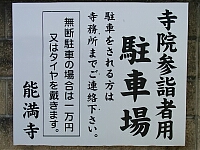 寺院参詣者用
駐車場
駐車をされる方は
寺務所までご連絡下さい。
無断駐車の場合は一万円
又はタイヤを戴きます。
能満寺